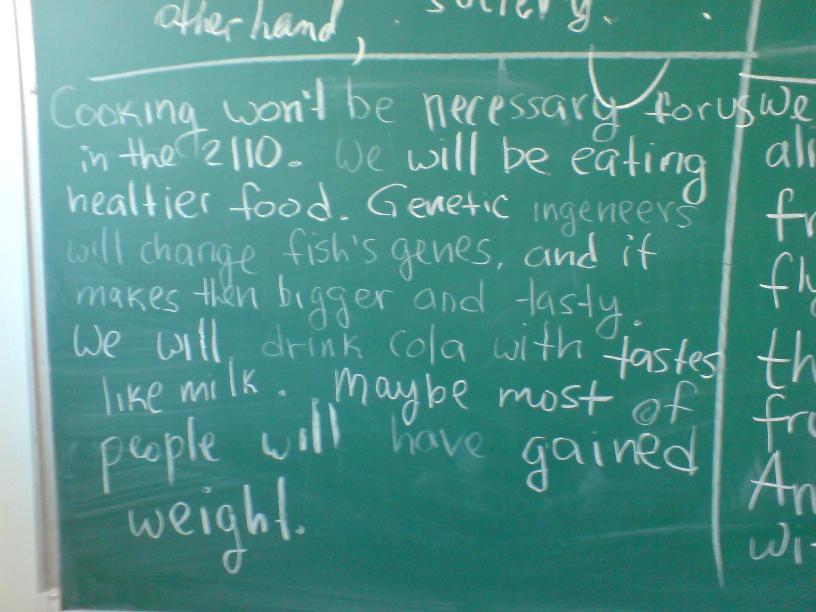 other hand, society.
Cooking won't be necessary for us
in the 2110. We will be eating
healtier food. Genetic ingeneers
will change fish's genes, and it
makes then bigger and tasty.
We will drink cola with tastes
like milk. Maybe most of
people will have gained
weight.
We
fly
An